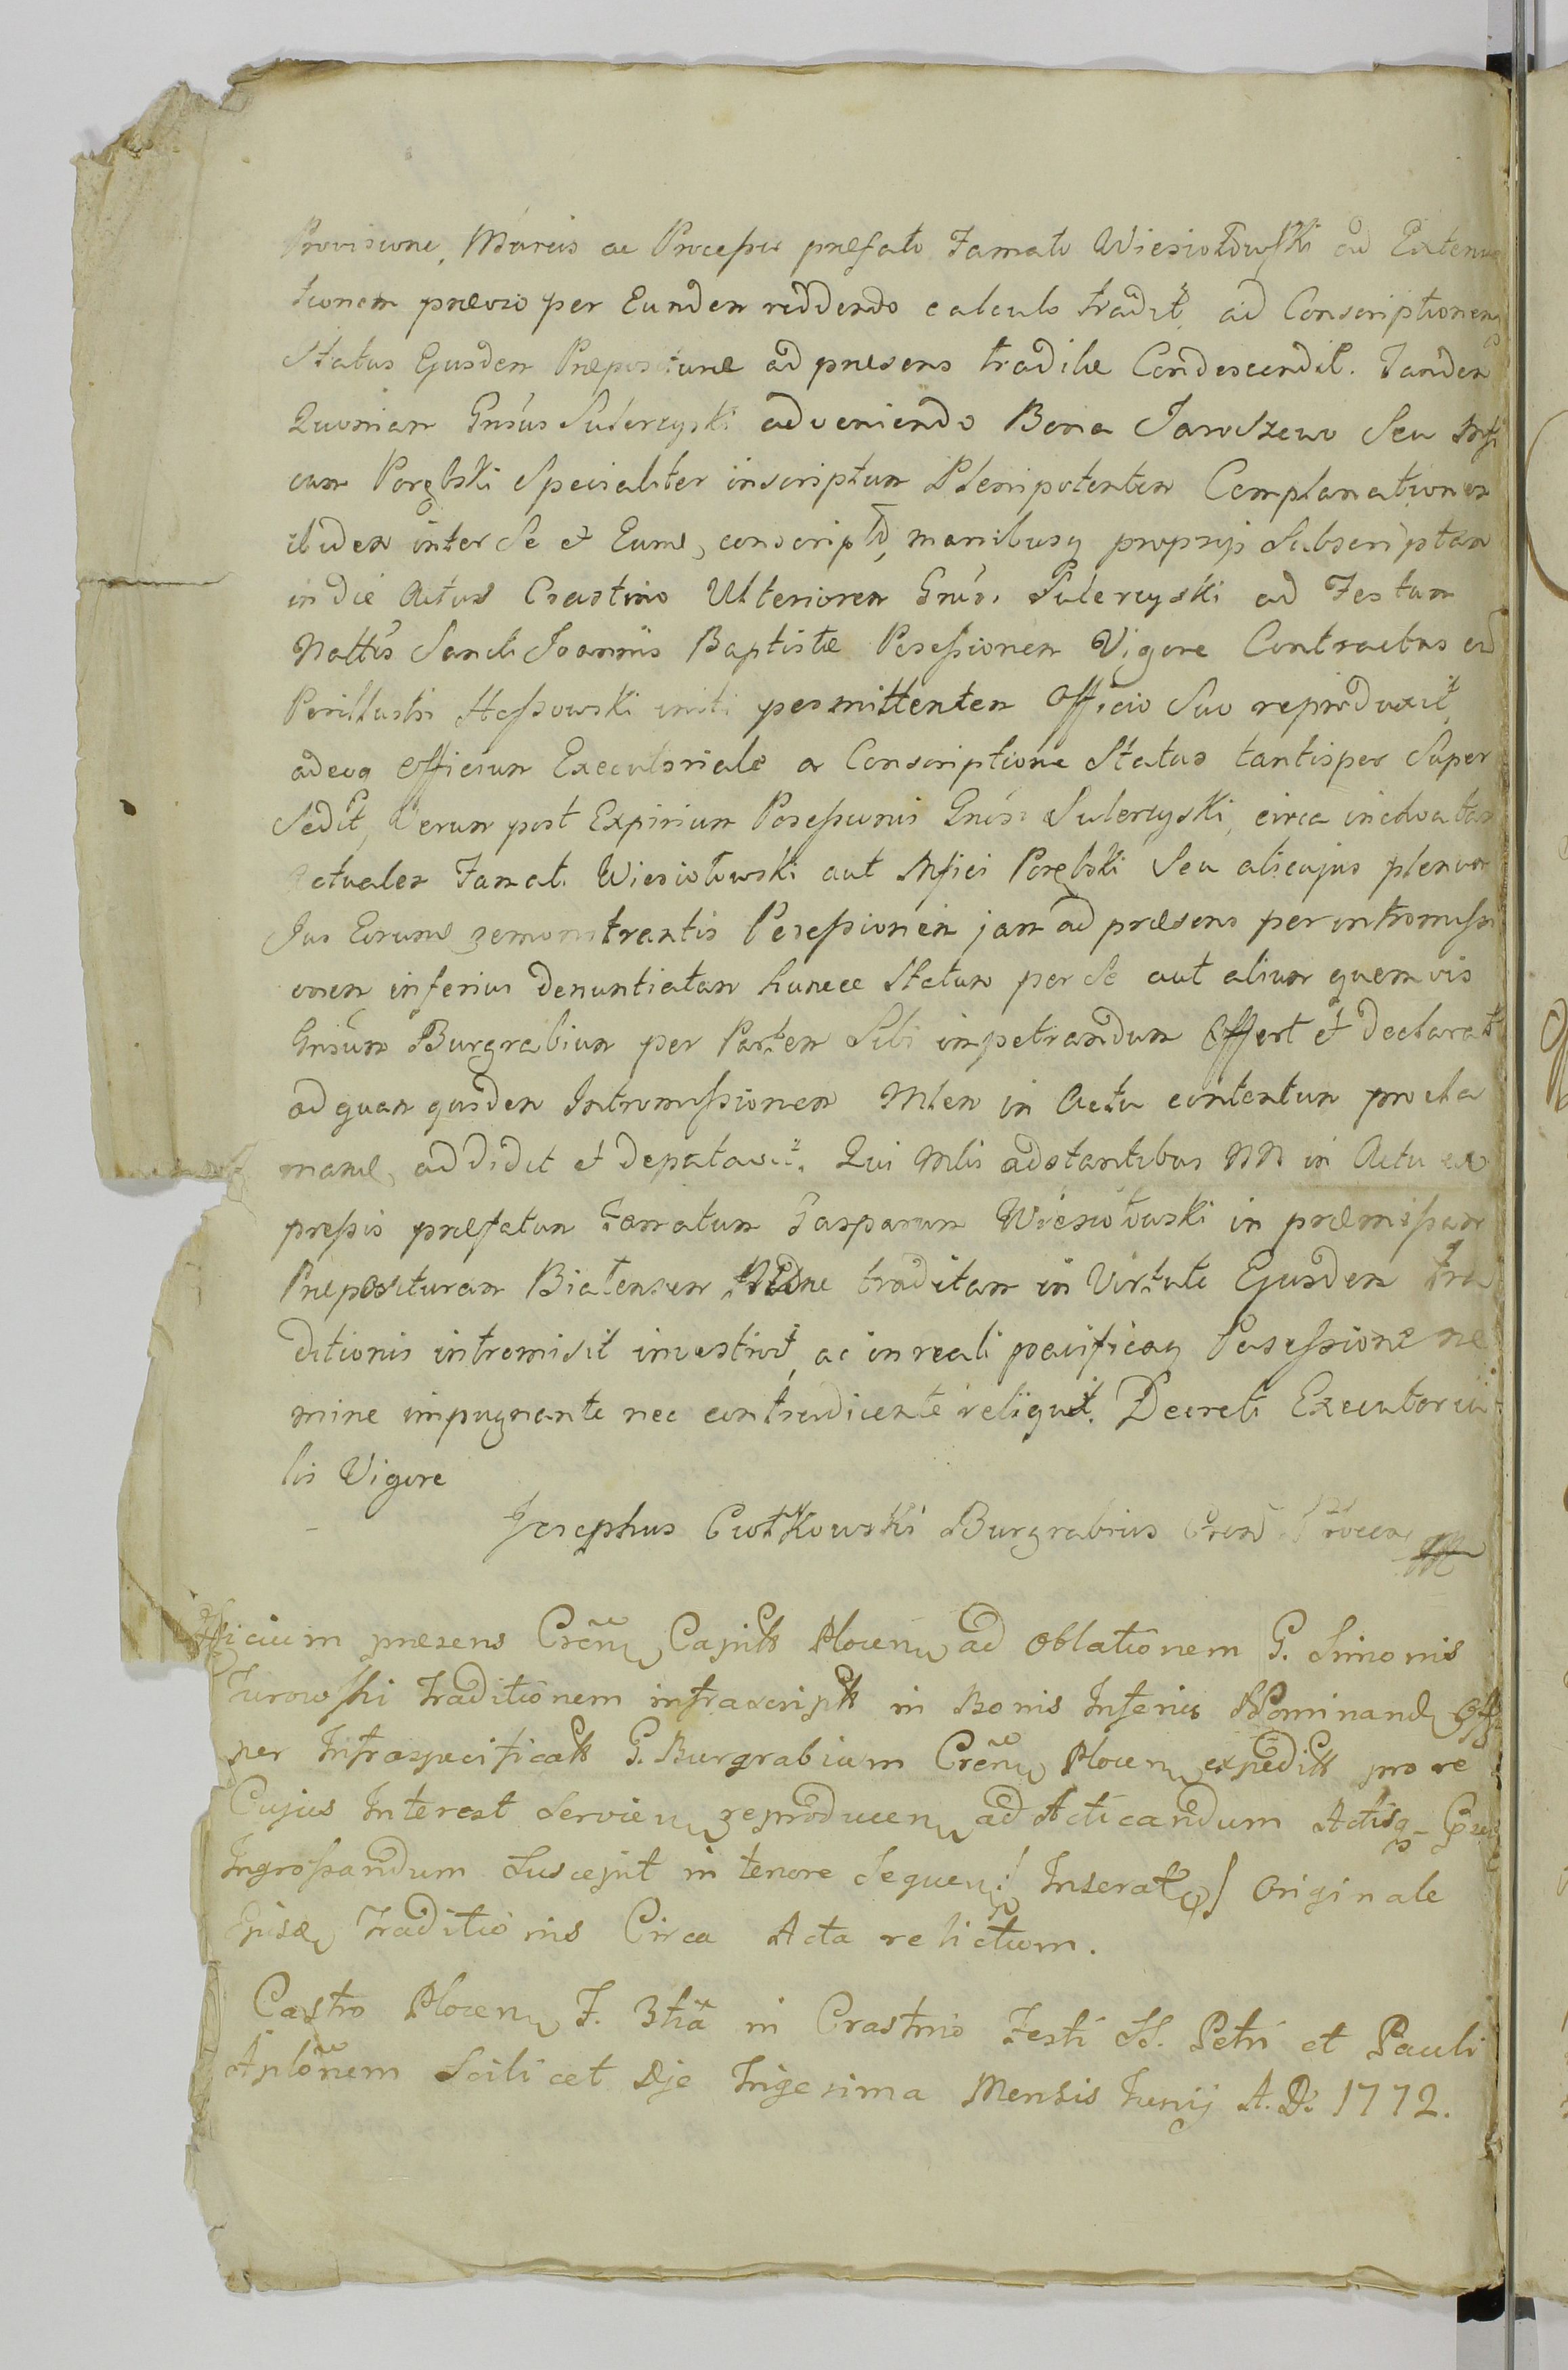 Provisione, Muneris ac Processus præfato Famato Wiesiołowski ad Extenua
tionem prævio per Eundem reddendo calculo tradit, ad Conscriptionem
Status Ejusdem Præpositurae ad præsens traditæ Condescendit. Tandem
Quoniam Gnsus Sulerzyski adveniendo Bona Jaroszewo Seu Mfi
cum Porębski Specialiter inscriptum Plenipotentem Complanationem
ibidem inter Se et Eund, conscriptã, manibusq proprijs Subscriptam
in die Actus Crastino Ulteriorem Gnsi Sulerzyski ad Festum
Nattis Sancti Joannis Baptistæ Possessionem Vigore Contractus ad
Perillustri initi permittentem Officio Suo reproduxit,
adeoq Officium Executoriale a Conscriptione Status tantisper Super
sedit, Verum post Expirium Possessionis Gnsi Sulerzyski, circa
actualem Famati Wiesiołowski aut Mfici Porębski Seu alicujus plenum
Jus Eorund remonstrantis Possessionem jam ad præsens per intromissi
onem inferius denuntiatam huncce Statum per Se aut alium quemvis
Gnsum Burgrabium per Partem Sibi impetrandum Offert et Declarat
ad quam quidem Intromissionem Mlem in Actu contentum procla
mare, addidit et deputavit. Qui Mlis adstantibus NN in Actu ex
pressis præfatum Famatum Gasparum Wiesiołowski in præmissam
Præposituram Bialensem traditam in Virtute Ejusdem Tra
ditionis intromisit investivit, ac in reali pacificaq Possessione ne
mine impugnante nec contradicente reliquit. Decreti Executoria
lis Vigore
Josephus Ciołkowski Burgrabius Cren Plocen mp
Officium præsens Creñ Capitt Plocen ad Oblationem G. Simonis
Turowski Traditionem infrascriptt in Bonis Inferius Nominand
per Infraspecificatt G. Burgrabium Creñ Plocen expeditt pro re
Cujus Interest Servien reproducen ad Acticandum Actisq
Ingrossandum Suscepit in tenore Sequen: / Inserat / Originale
Ejusd Traditionis Circa Acta relictum.
Castro Plocen F. 3tia in Crastino Festi SS. Petri et Pauli
Aplõrum Scilicet Die Trigesima Mensis Junij A. D. 1772.